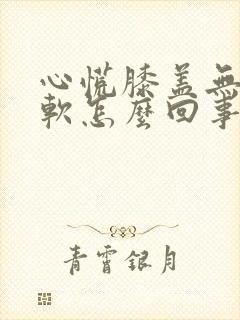 心慌膝盖無
軟怎麼回事
青霄銀月